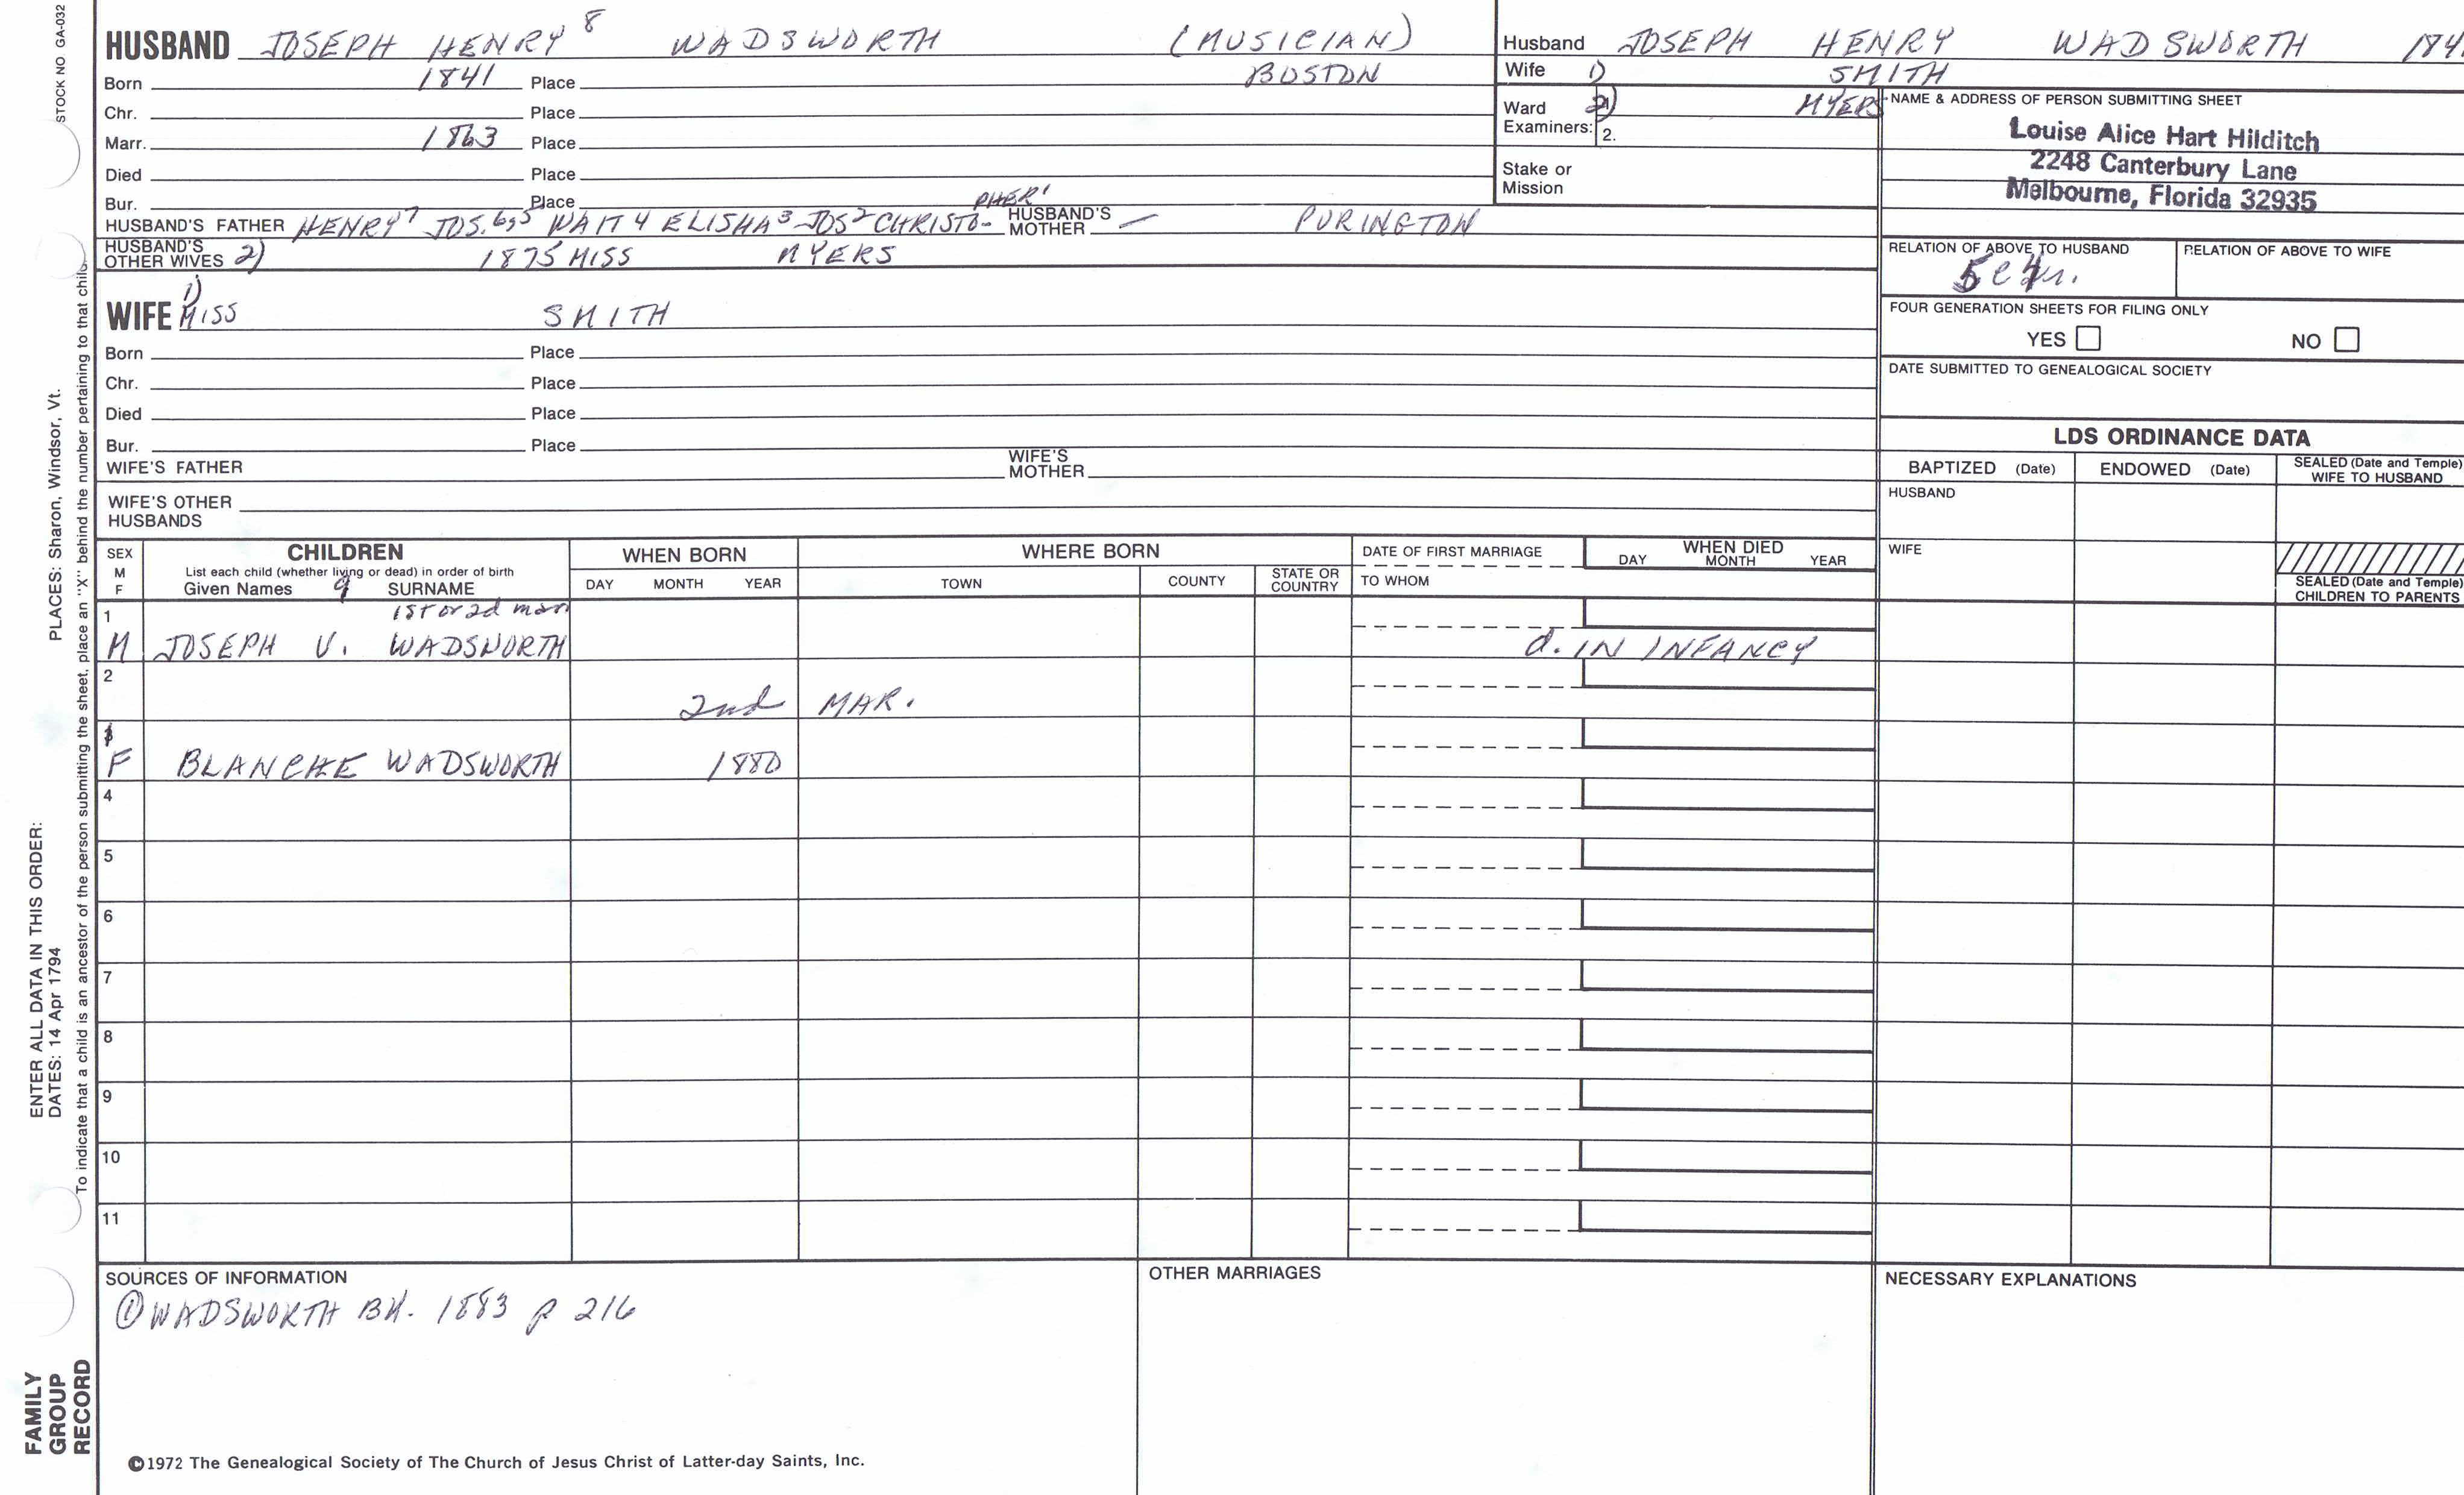 STOCK NO GA-032
PLACES: Sharon, Windsor, Vt.
ENTER ALL DATA IN THIS ORDER:
DATES: 14 Apr 1794
To indicate that a child is an ancestor of the person submitting the sheet, place an "X" behind the number pertaining to that child.
FAMILY
GROUP
RECORD
HUSBAND JOSEPH HENRY 8 WADSWORTH (MUSICIAN)
Born 1841 Place BOSTON
Chr. Place
Marr. 1863 Place
Died Place
Bur. Place
HUSBAND'S FATHER HENRY7 JOS.6,5 WAIT 4 ELISHA3 JOS2 CHRISTO-PHER1 HUSBAND'S MOTHER — PURINGTON
HUSBAND'S OTHER WIVES 2) 1875 MISS MYERS
1)
WIFE MISS SMITH
Born Place
Chr. Place
Died Place
Bur. Place
WIFE'S FATHER WIFE'S MOTHER
WIFE'S OTHER HUSBANDS
Husband JOSEPH HENRY WADSWORTH 184
Wife 1) SMITH
Ward 2) MYERS
Examiners: 2.
Stake or
Mission
NAME & ADDRESS OF PERSON SUBMITTING SHEET
Louise Alice Hart Hilditch
2248 Canterbury Lane
Melbourne, Florida 32935
RELATION OF ABOVE TO HUSBAND RELATION OF ABOVE TO WIFE
FOUR GENERATION SHEETS FOR FILING ONLY
YES NO
DATE SUBMITTED TO GENEALOGICAL SOCIETY
LDS ORDINANCE DATA
BAPTIZED (Date) ENDOWED (Date) SEALED (Date and Temple) WIFE TO HUSBAND
HUSBAND
WIFE
SEALED (Date and Temple)
CHILDREN TO PARENTS
SEX M F CHILDREN WHEN BORN WHERE BORN DATE OF FIRST MARRIAGE WHEN DIED
List each child (whether living or dead) in order of birth
Given Names 9 SURNAME DAY MONTH YEAR TOWN COUNTY STATE OR COUNTRY TO WHOM DAY MONTH YEAR
1 1st or 2d mar
M JOSEPH V. WADSWORTH d. IN INFANCY
2
2nd MAR.
3
F BLANCHE WADSWORTH 1880
4
5
6
7
8
9
10
11
SOURCES OF INFORMATION OTHER MARRIAGES NECESSARY EXPLANATIONS
① WADSWORTH BK. 1883 p 216
©1972 The Genealogical Society of The Church of Jesus Christ of Latter-day Saints, Inc.